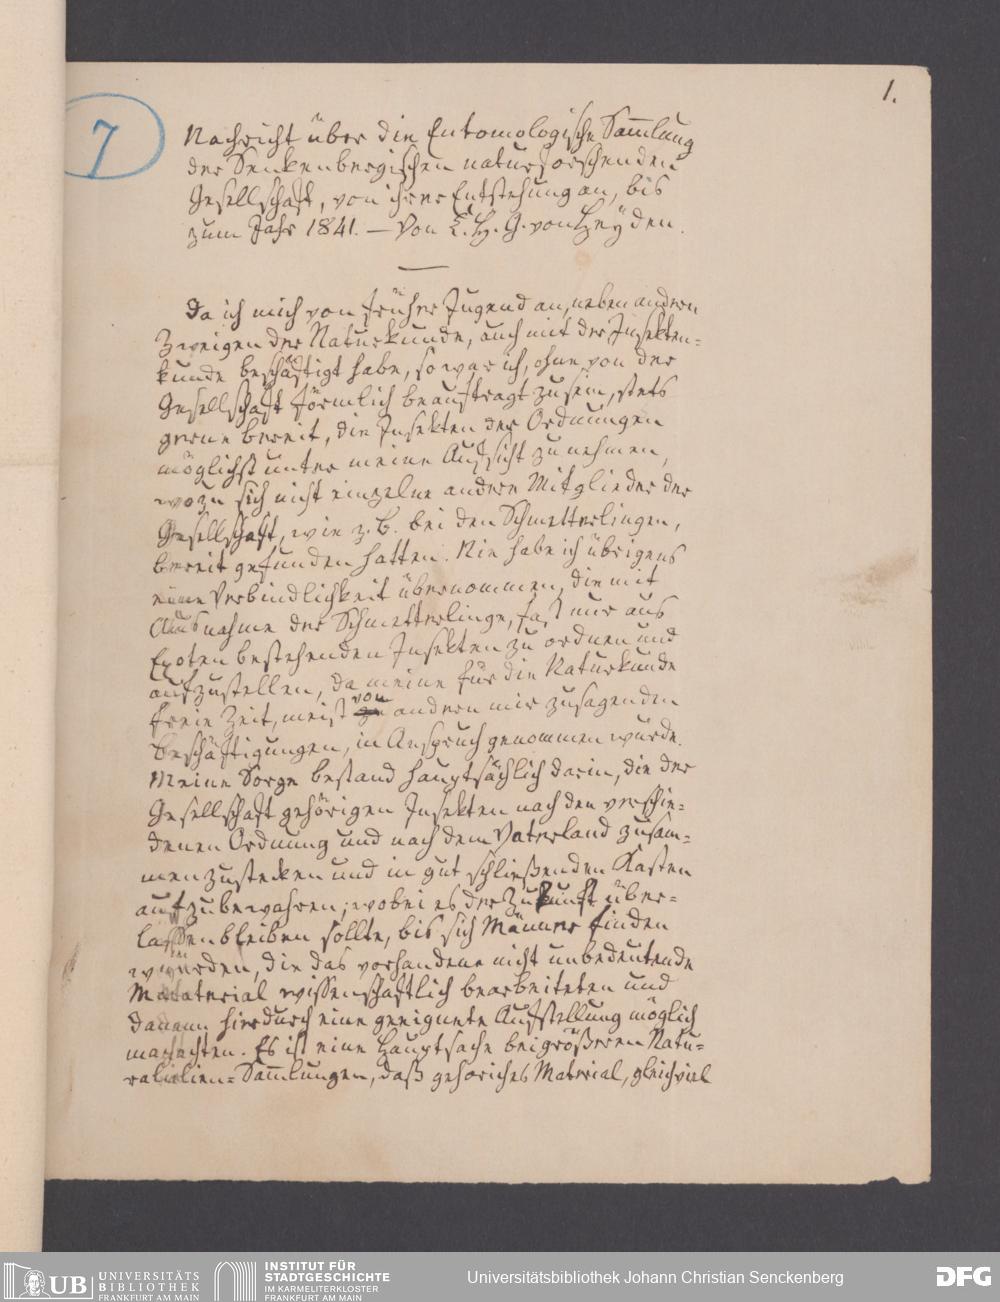 1.
7
Nachricht über die Entomologische Sam̄lung
der Senkenbergischen naturforschenden
Gesellschaft, von ihrer Entstehung an, bis
zum Jahr 1841. — Von C. H. G. von Heÿden.
Da ich mich von früher Jugend an, neben andern
Zweigen der Naturkunde, auch mit der Insekten-
kunde beschäftigt habe, so war ich, ohne von der
Gesellschaft förmlich beauftragt zu sein, stets
gerne bereit, die Insekten der Ordnungen
möglichst unter meine Aufsicht zu nehmen,
wozu sich nicht einzelne andere Mitglieder der
Gesellschaft, wie z. B. bei den Schmetterlingen,
bereit gefunden hatten. Nie habe ich übrigens
eine Verbindlichkeit übernommen, die mit
Ausnahme der Schmetterlinge, fast nur aus
Exoten bestehenden Insekten zu ordnen und
aufzustellen, da meine für die Naturkunde
freie Zeit, meist von andern mir zusagenden
Beschäftigungen, in Anspruch genommen wurde.
Meine Sorge bestand hauptsächlich darin, die der
Gesellschaft gehörigen Insekten nach den verschie-
denen Ordnung und nach dem Vaterland zusam-
menzustecken und in gut schließenden Kasten
aufzubewahren; wobei es der Zukunft über-
lassen bleiben sollte, bis sich Männer finden
würden, die das vorhandene nicht unbedeutende
Material wissenschaftlich bearbeiteten und
dann hierdurch eine geeignete Aufstellung möglich
machten. Es ist eine Hauptsache bei größeren Natu-
ralien-Sam̄lungen, daß gehöriches Material, gleichviel
UB UNIVERSITÄTS
BIBLIOTHEK
FRANKFURT AM MAIN
INSTITUT FÜR
STADTGESCHICHTE
IM KARMELITERKLOSTER
FRANKFURT AM MAIN
Universitätsbibliothek Johann Christian Senckenberg
DFG